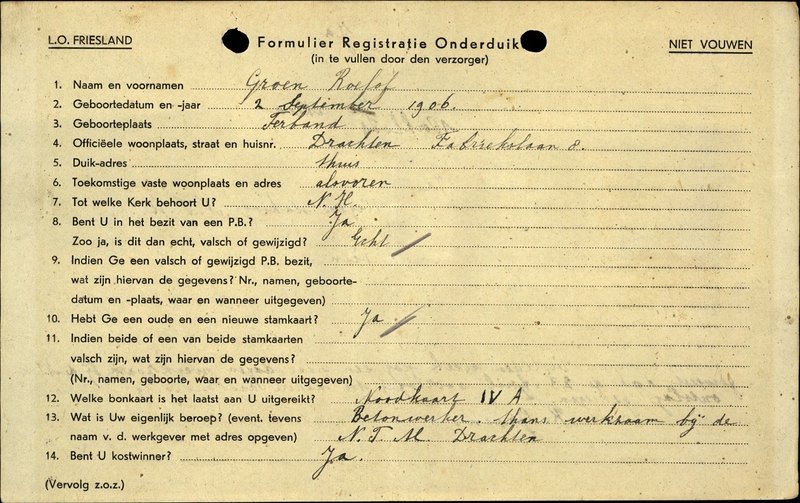 L.O. FRIESLAND
Formulier Registratie Onderduik
NIET VOUWEN
(in te vullen door den verzorger)
1. Naam en voornamen Groen Roelof
2. Geboortedatum en -jaar 2 September 1906.
3. Geboorteplaats Terband
4. Officiëele woonplaats, straat en huisnr. Drachten Fabriekslaan 8.
5. Duik-adres thuis
6. Toekomstige vaste woonplaats en adres alsvoren
7. Tot welke Kerk behoort U? N. H.
8. Bent U in het bezit van een P.B.? Ja
Zoo ja, is dit dan echt, valsch of gewijzigd? Echt
9. Indien Ge een valsch of gewijzigd P.B. bezit,
wat zijn hiervan de gegevens? Nr., namen, geboorte-
datum en -plaats, waar en wanneer uitgegeven)
10. Hebt Ge een oude en een nieuwe stamkaart? Ja
11. Indien beide of een van beide stamkaarten
valsch zijn, wat zijn hiervan de gegevens?
(Nr., namen, geboorte, waar en wanneer uitgegeven)
12. Welke bonkaart is het laatst aan U uitgereikt? Noodkaart IV A
13. Wat is Uw eigenlijk beroep? (event. tevens Betonwerker. thans werkzaam bij de
naam v. d. werkgever met adres opgeven) N. T. M. Drachten
14. Bent U kostwinner? Ja.
(Vervolg z.o.z.)